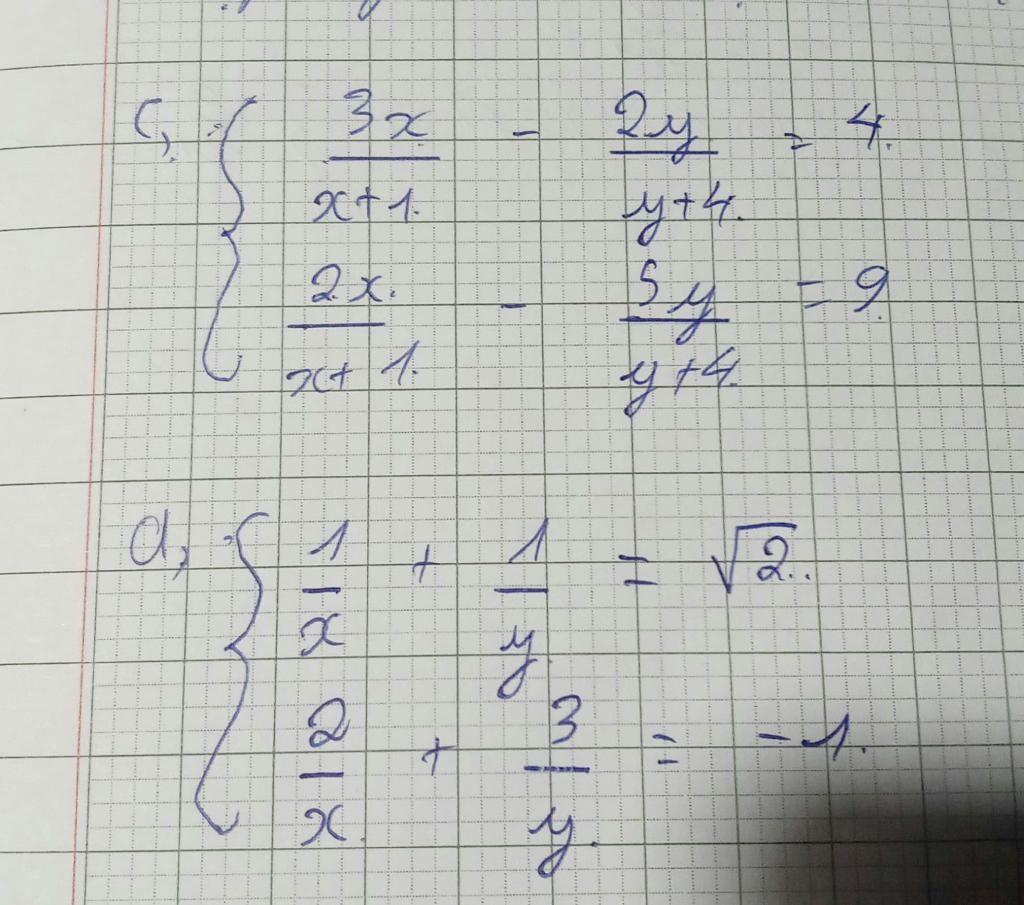 c, { 3x/(x+1) - 2y/(y+4) = 4.
2x/(x+1) - 5y/(y+4) = 9
d, { 1/x + 1/y = √2
2/x + 3/y = -1.